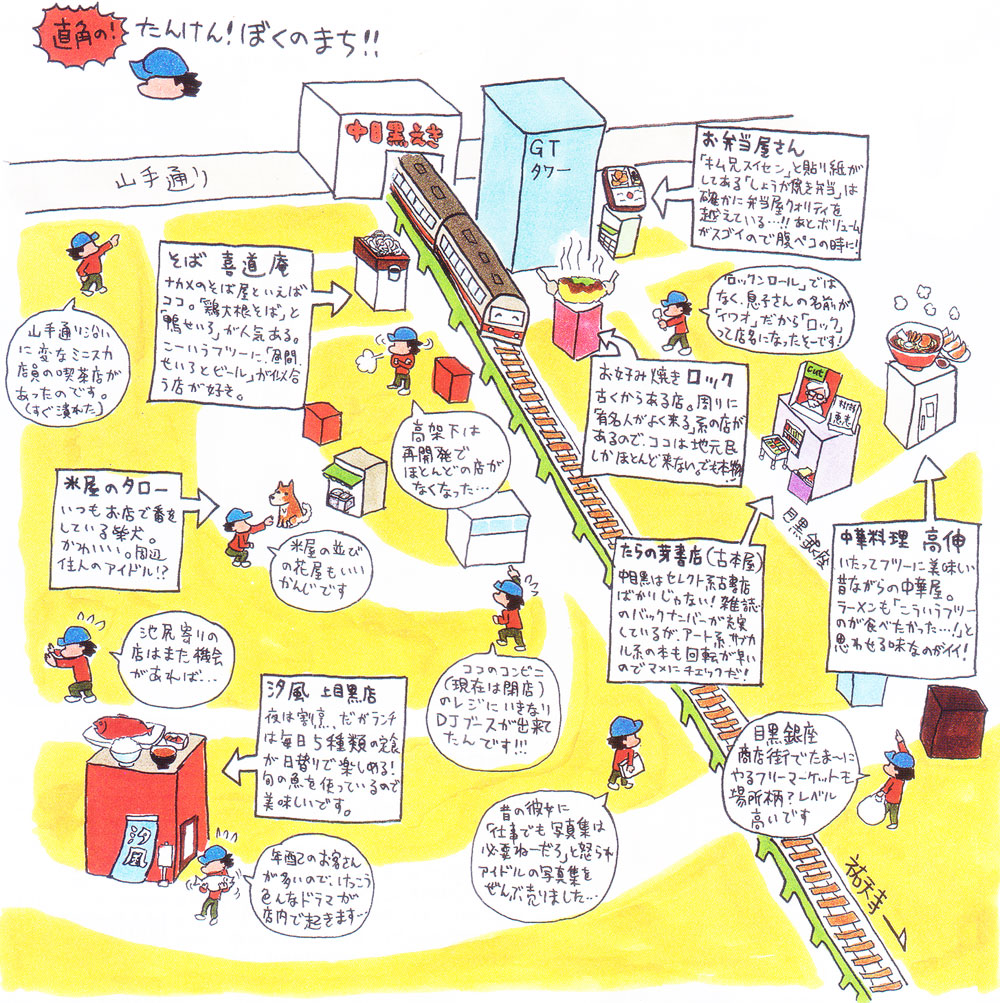 直角の!
たんけん!ぼくのまち!!
中目黒えき
GT
タワー
山手通り
お弁当屋さん
「キム兄スイセン」と貼り紙が
してある「しょうが焼き弁当」は
確かに弁当屋クォリティを
越えている…!!あとボリューム
がスゴイので腹ペコの時に!
そば 喜道庵
ナカメのそば屋といえば
ココ。「鶏大根そば」と
「鴨せいろ」が人気ある。
こーいうフツーに、「昼間、
せいろとビール」が似合
う店が好き。
山手通り沿い
に変なミニスカ
店員の喫茶店が
あったのです。
(すぐ潰れた)
「ロックンロール」では
なく、息子さんの名前が
「イワオ」だから「ロック」
って店名になったそーです!
お好み焼き ロック
古くからある店。周りに
「有名人がよく来る」系の店が
あるので、ココは地元民
しかほとんど来ない。でも本物!
cut
高架下は
再開発で
ほとんどの店が
なくなった…
米屋のタロー
いつもお店で番を
している柴犬。
かわいいい。周辺
住人のアイドル!?
米屋の並び
の花屋もいい
かんじです
目黒銀座
たらの芽書店(古本屋)
中目黒はセレクト系古書店
ばかりじゃない!雑誌
のバックナンバーが充実
しているが、アート系、サブカ
ル系の本も回転が早い
のでマメにチェックだ!
中華料理 高伸
いたってフツーに美味しい
昔ながらの中華屋。
ラーメンも「こういうフツー
のが食べたかった…!」と
思わせる味なのがイイ!
池尻寄りの
店はまた機会
があれば…
ココのコンビニ
(現在は閉店)
のレジにいきなり
DJブースが出来て
たんです!!!
汐風 上目黒店
夜は割烹、だがランチ
は毎日5種類の定食
が日替りで楽しめる!
旬の魚を使っているので
美味しいです。
汐風
目黒銀座
商店街でたま〜に
やるフリーマーケットも
場所柄?レベル
高いです
昔の彼女に
「仕事でも写真集は
必要ねーだろ」と怒られ
アイドルの写真集を
ぜんぶ売りました…
年配のお客さん
が多いので、けっこう
色んなドラマが
店内で起きます…
祐天寺→